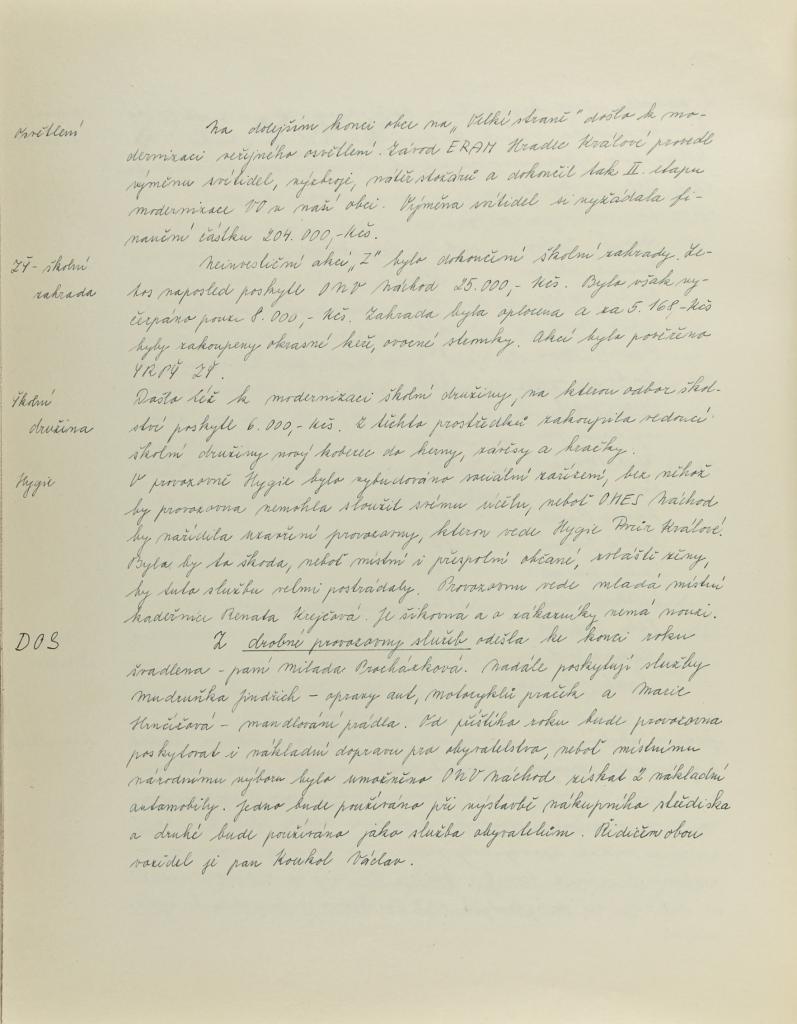 osvětlení
Na dolejším konci obce na „Velké straně" došlo k mo-
dernizaci veřejného osvětlení. Závod ERAM Hradec Králové provedl
výměnu svítidel, výzbroje, nátěr stožárů a dokončil tak II. etapu
modernizace VO v naší obci. Výměna svítidel si vyžádala fi-
nanční částku 204.000,-Kčs.
ZŠ - školní
zahrada
Neinvestiční akcí „Z" bylo dokončení školní zahrady. Le-
tos naposled poskytl ONV Náchod 25.000,- Kčs. Bylo však vy-
čerpáno pouze 8.000,- Kčs. Zahrada byla oplocena a za 5.168,-Kčs
byly zakoupeny okrasné keře, ovocné stromky. Akcí bylo pověřeno
SRPŠ ZŠ.
Školní
družina
Došlo též k modernizaci školní družiny, na kterou odbor škol-
ství poskytl 6.000,- Kčs. Z těchto prostředků zakoupila vedoucí
školní družiny nový koberec do herny, závěsy a hračky.
Hygie
V provozovně Hygie bylo vybudováno sociální zařízení, bez něhož
by provozovna nemohla sloužit svému účelu, neboť OHES Náchod
by nařídila uzavření provozovny, kterou vede Hygie Dvůr Králové.
Byla by to škoda, neboť místní i přespolní občané, zvláště ženy,
by tuto službu velmi postrádaly. Provozovnu vede mladá místní
kadeřnice Renata Krejčová. Je šikovná a o zákazníky nemá nouzi.
DOS
Z drobné provozovny služeb odešla ke konci roku
švadlena - paní Milada Procházková. Nadále poskytují služby
Mudruňka Jindřich - opravy aut, motocyklů praček a Marie
Hrnčířová - mandlování prádla. Od příštího roku bude provozovna
poskytovat i nákladní dopravu pro obyvatelstvo, neboť místnímu
národnímu výboru bylo umožněno ONV Náchod získat 2 nákladní
automobily. Jedno bude používáno při výstavbě nákupního střediska
a druhé bude používáno jako služba obyvatelům. Řidičem obou
vozidel je pan Koukol Václav.